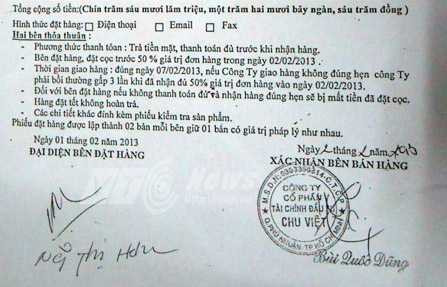 Tổng cộng số tiền:(Chín trăm sáu mươi lăm triệu, một trăm hai mươi bảy ngàn, sáu trăm đồng )
Hình thức đặt hàng: Điện thoại Email Fax
Hai bên thỏa thuân :
- Phương thức thanh tóan : Trả tiền mặt, thanh toán đủ trước khi nhận hàng.
- Bên đặt hàng, đặt cọc trước 50 % giá trị đơn hàng trong ngày 02/02/2013 .
- Thời gian giao hàng : đúng ngày 07/02/2013, nếu Công Ty giao hàng không đúng hẹn công Ty
phải bồi thường gấp 3 lần khi đã nhận đủ 50% giá trị đơn hàng vào ngày 02/02/2013.
- Đối với bên đặt hàng nếu không thanh toán đủ và nhận hàng đúng hẹn sẽ bị mất tiền đã đặt cọc.
- Hàng đặt tết không hoàn trả.
- Các chi tiết khác đính kèm phiếu kiểm tra sản phẩm.
Phiếu đặt hàng được lập thành 02 bản mỗi bên giữ 01 bản có giá trị pháp lý như nhau.
Ngày 01 tháng 02 năm 2013
Ngày 2 tháng 2 năm 2013
ĐẠI DIỆN BÊN ĐẶT HÀNG
XÁC NHẬN BÊN BÁN HÀNG
News
CÔNG TY
CỔ PHẦN
TÀI CHÍNH ĐẦU TƯ
CHU VIỆT
Q.PHÚ NHUẬN-TP HỒ CHÍ MINH
Bùi Quốc Dũng